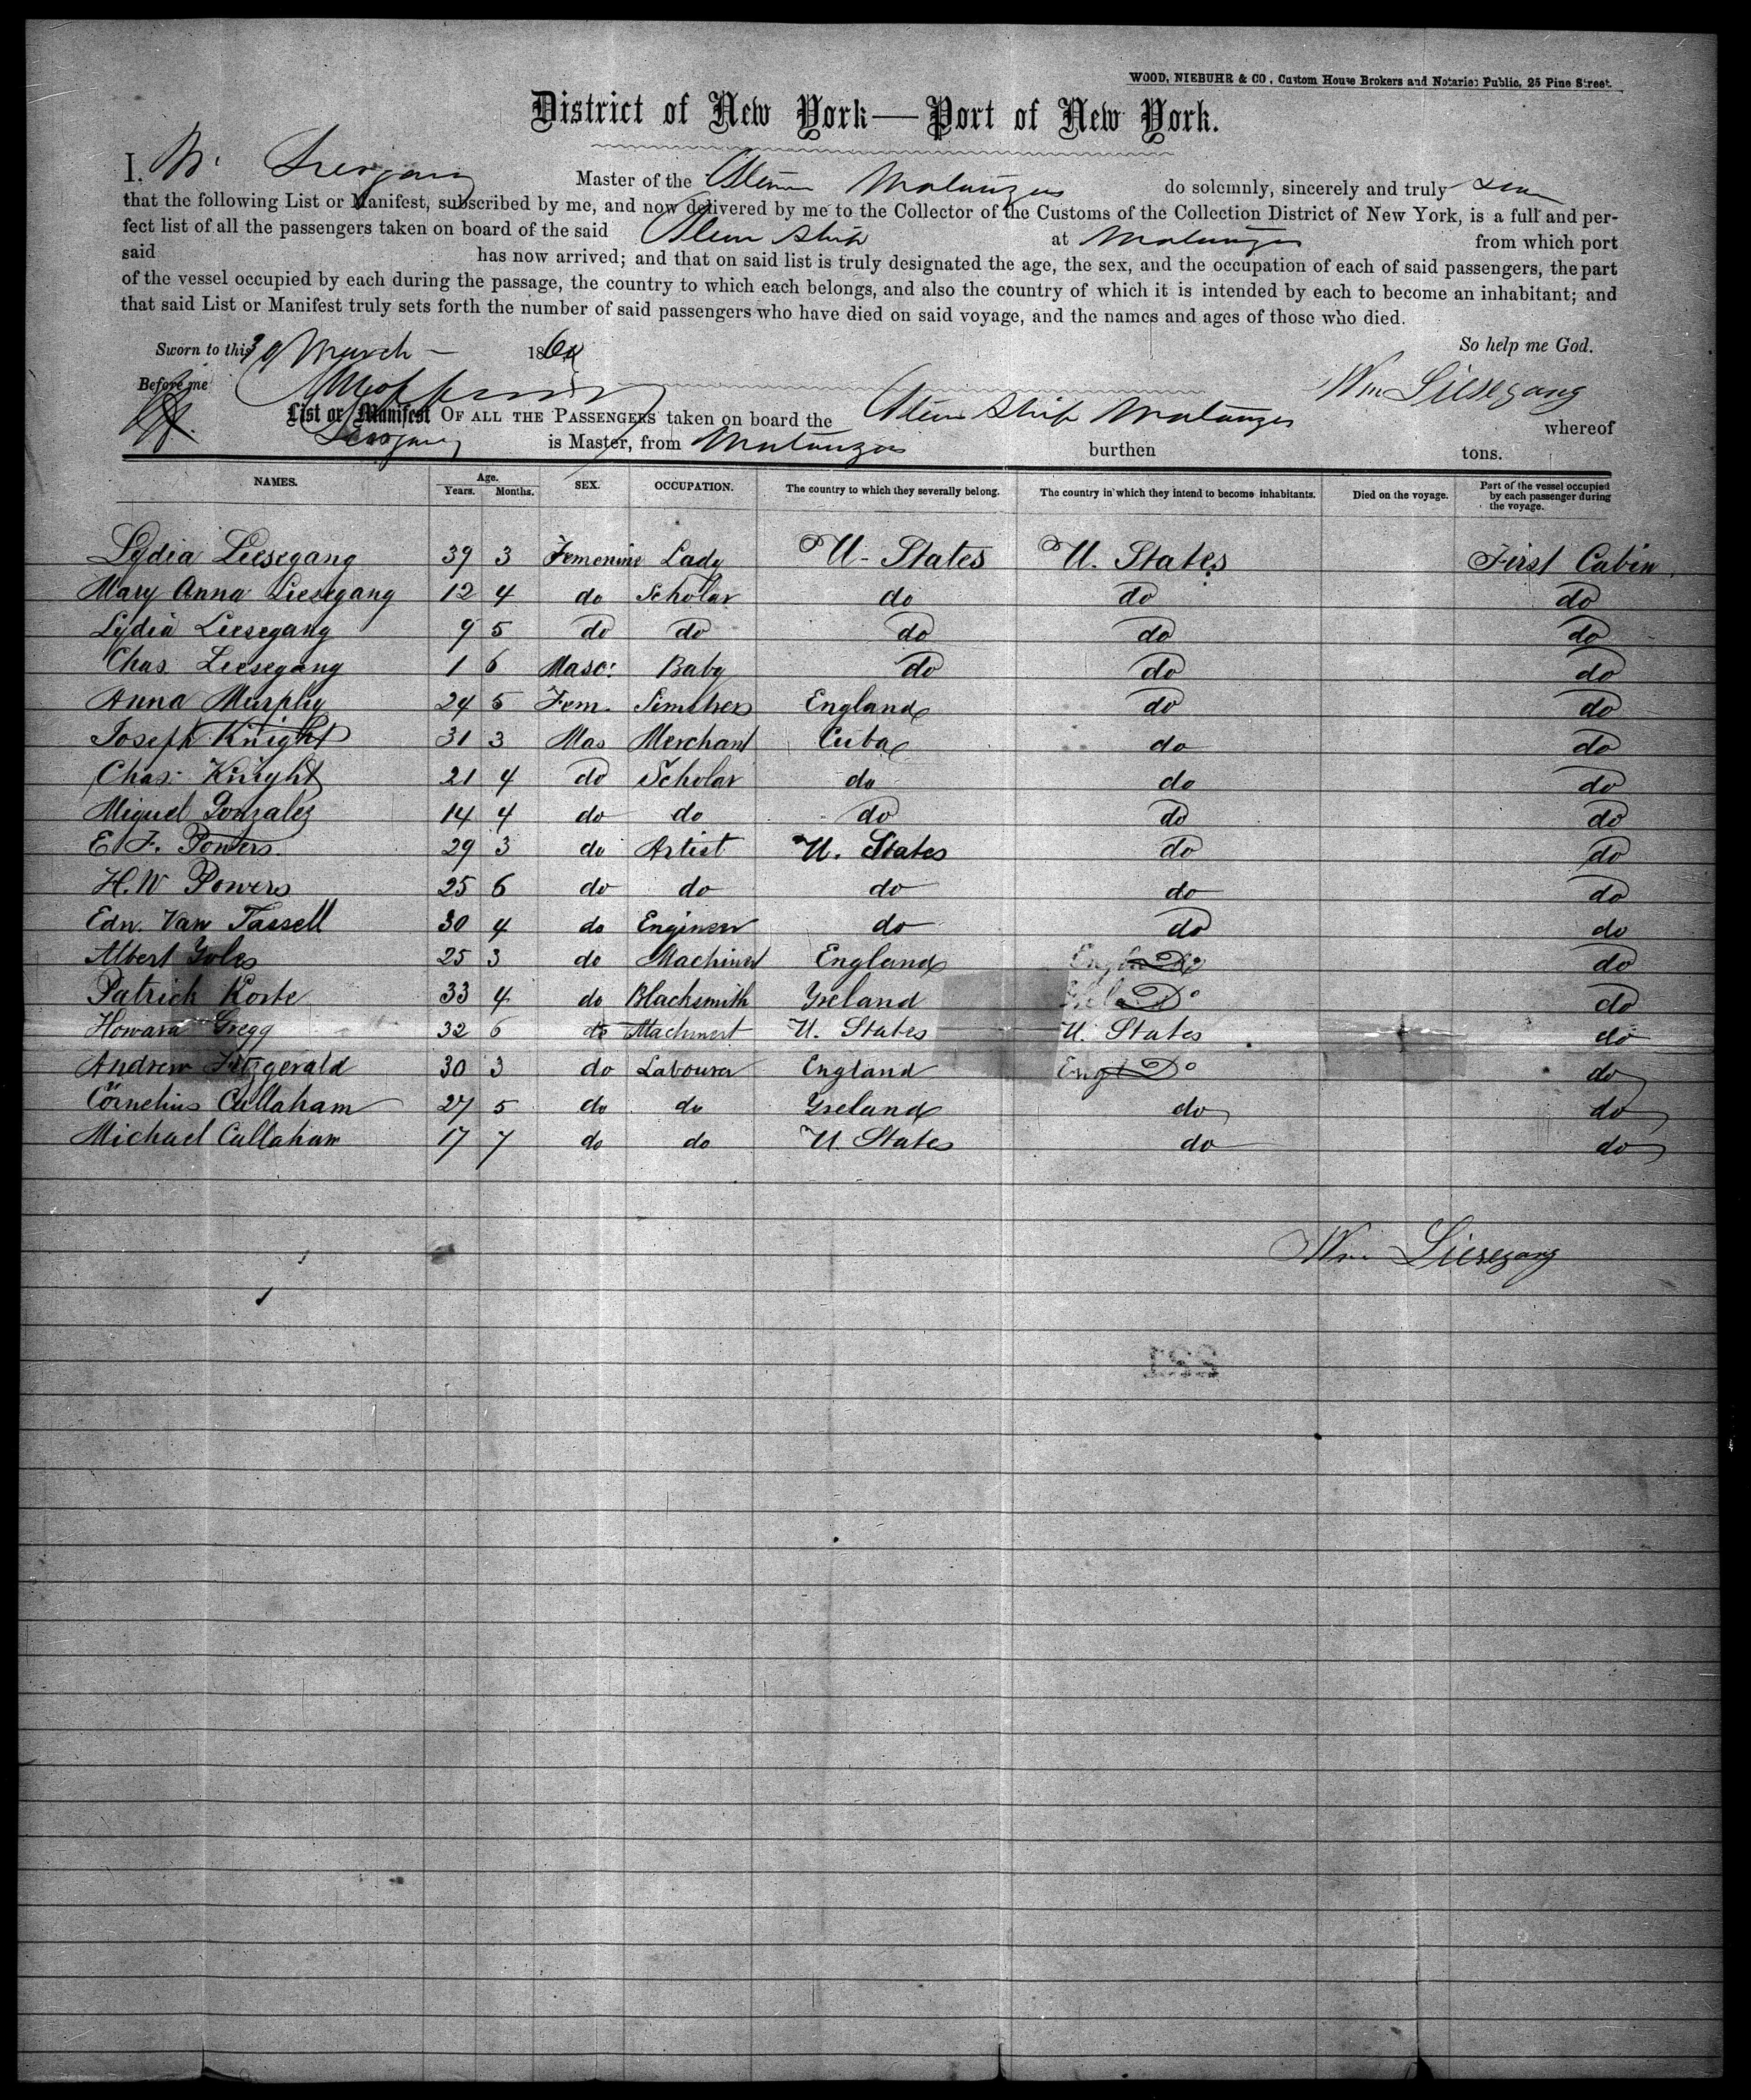 WOOD, NIEBUHR & CO, Custom House Brokers and Notaries Public, 25 Pine Street.
District of New York—Port of New York.
I, W. Liesegang Master of the Steam Matanzas do solemnly, sincerely and truly
that the following List or Manifest, subscribed by me, and now delivered by me to the Collector of the Customs of the Collection District of New York, is a full and per-
fect list of all the passengers taken on board of the said Steam Ship at Matanzas from which port
said has now arrived; and that on said list is truly designated the age, the sex, and the occupation of each of said passengers, the part
of the vessel occupied by each during the passage, the country to which each belongs, and also the country of which it is intended by each to become an inhabitant; and
that said List or Manifest truly sets forth the number of said passengers who have died on said voyage, and the names and ages of those who died.
Sworn to this 30 March 186 So help me God.
Before me Wm Liesegang
List or Manifest OF ALL THE PASSENGERS taken on board the Steam Ship Matanzas whereof
Liesegang is Master, from Matanzas burthen tons.
NAMES. Age. Years. Months. SEX. OCCUPATION. The country to which they severally belong. The country in which they intend to become inhabitants. Died on the voyage. Part of the vessel occupied by each passenger during the voyage.
Lydia Liesegang 39 3 Femenine Lady U-States U. States First Cabin
Mary Anna Liesegang 12 4 do Scholar do do do
Lydia Liesegang 9 5 do do do do do
Chas. Liesegang 1 6 Masc: Baby do do do
Anna Murphy 24 5 Fem. Simstress England do do
Joseph Knight 31 3 Mas Merchant Cuba do do
Chas. Knight 21 4 do Scholar do do do
Miguel Gonzalez 14 4 do do do do do
E. F. Powers 29 3 do Artist U. States do do
H. W Powers 25 6 do do do do do
Edw. Van Tassell 30 4 do Engineer do do do
Albert Yoles 25 3 do Machinist England Do do
Patrick Korte 33 4 do Blacksmith Yreland Do do
Howard Gregg 32 6 do Machinist U. States U. States do
Andrew Fitzgerald 30 3 do Labourer England Engl Do do
Cornelius Callaham 27 5 do do Yreland do do
Michael Callaham 17 7 do do U. States do do
Wm Liesegang
221